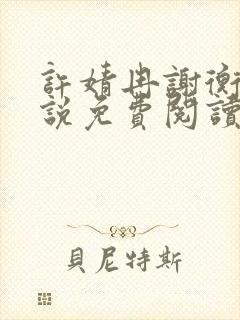 許婧冉謝衡
說免費閱讀
貝尼特斯